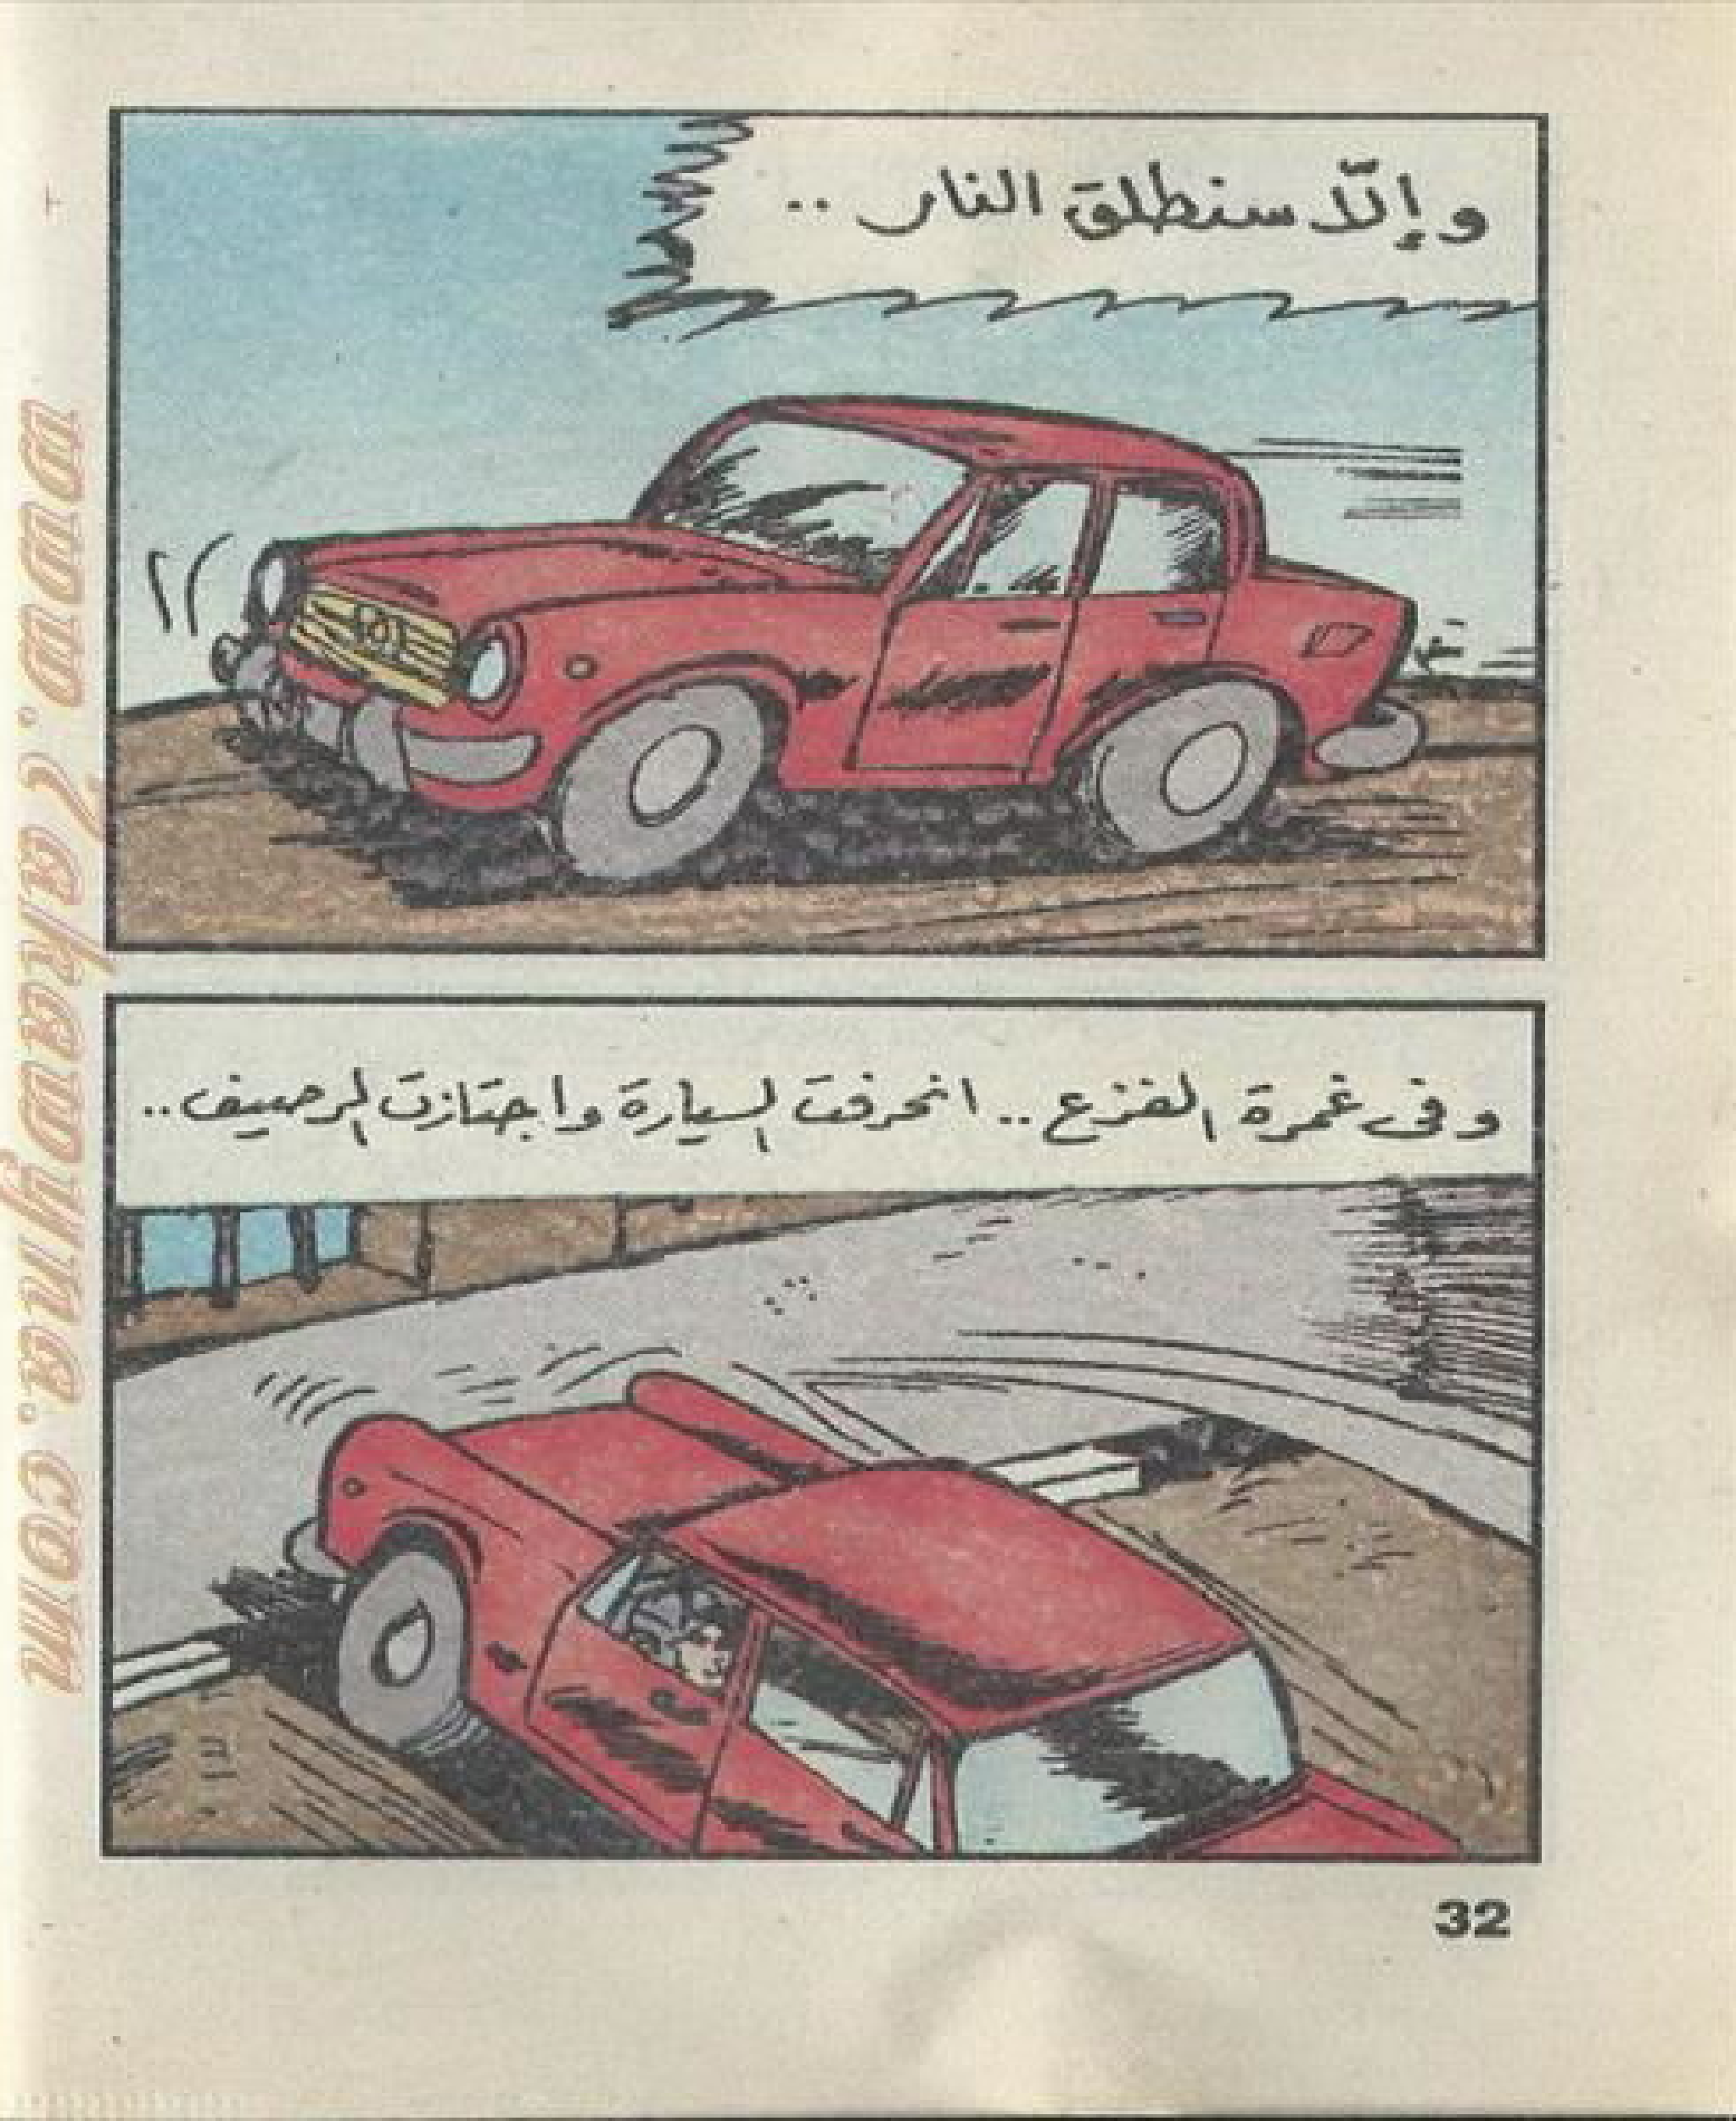 وإلّا سنطلق النار ..
وفى غمرة الفزع .. انحرفت السيارة واجتازت الرصيف ..
32
www.Zakaryna.com